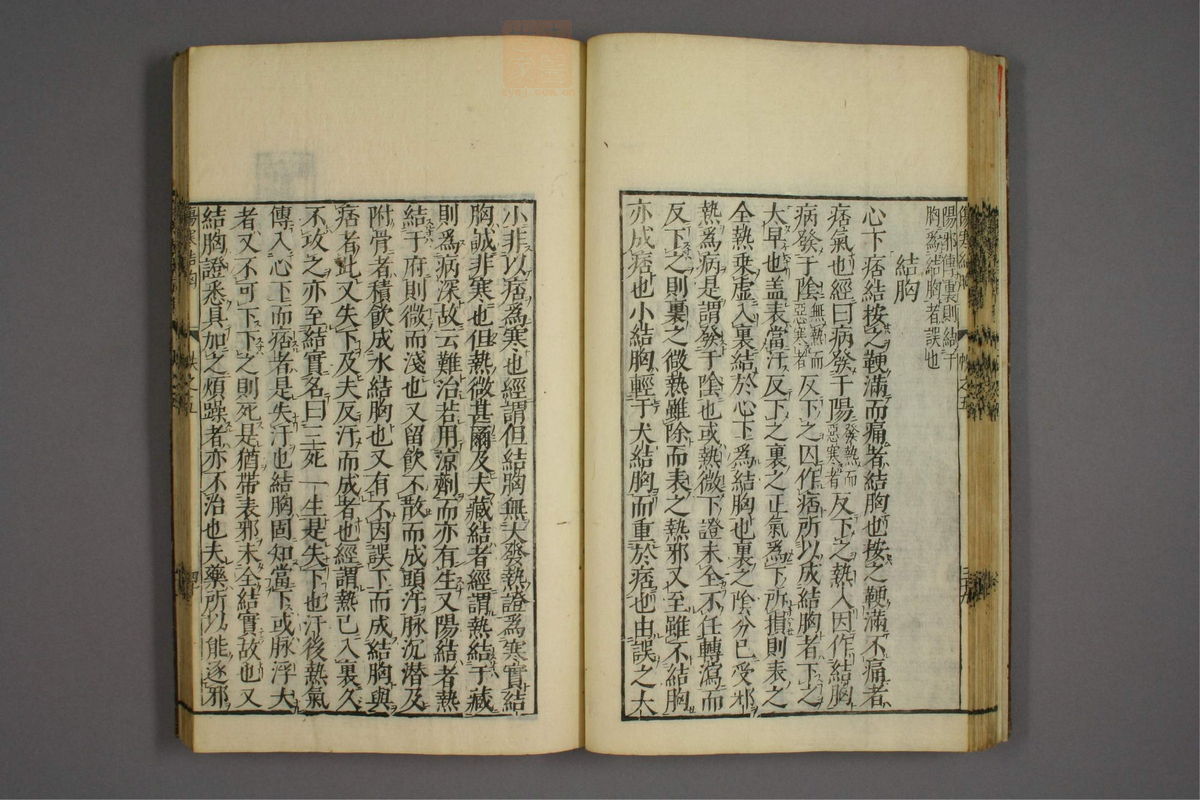 陽邪傳裏則結于
胸爲結胸者誤也
結胸
心下痞結按之鞕滿而痛者結胸也按之鞕滿不痛者
痞氣也經曰病發于陽發熱而惡寒者反下之熱入因作結胸
病發于陰無熱而惡寒者反下之因作痞所以成結胸者下之
太早也盖表當汗反下之裏之正氣爲下所損則表之
全熱乘虛入裏結於心下爲結胸也裏之陰分已受邪
熱爲病是謂發于陰也或熱微下證未全不任轉瀉而
反下之則裏之微熱雖除而表之熱邪又至雖不結胸
亦成痞也小結胸輕于大結胸而重於痞也由誤之大
小非以痞爲寒也經謂但結胸無大發熱證爲寒實結
胸誠非寒也但熱微甚爾及夫藏結者經謂熱結于藏
則爲病深故云難治若用涼劑而亦有生又陽結者熱
結于府則微而淺也又留飲不散而成頭汗脉沉潛及
附骨者積飲成水結胸也又有不因誤下而成結胸與
痞者此又失下及夫反汗而成者也經謂熱已入裏久
不攻之亦至結實名曰三死一生是失下也汗後熱氣
傳入心下而痞者是失汗也結胸固知當下或脉浮大
者又不可下下之則死是猶帶表邪未全結實故也又
結胸證悉具加之煩躁者亦不治也夫藥所以能逐邪